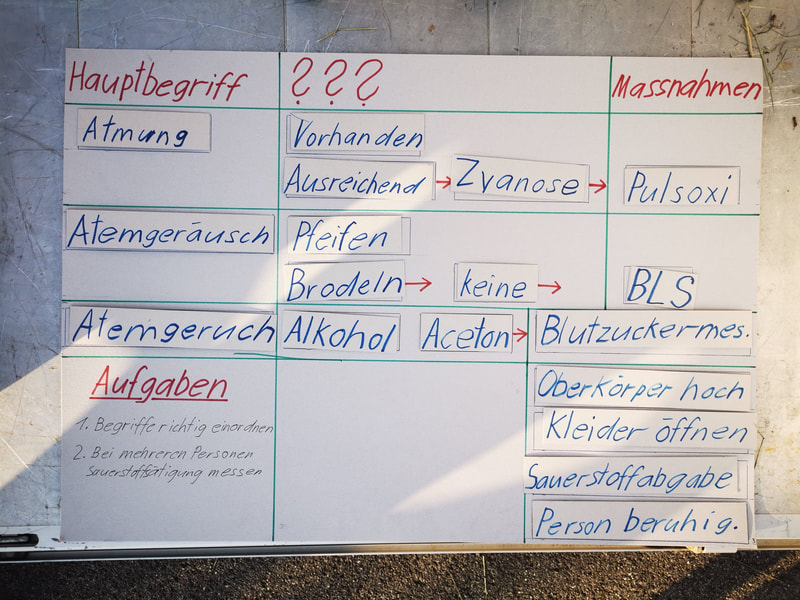 Hauptbegriff ??? Massnahmen
Atmung Vorhanden
Ausreichend → Zyanose → Pulsoxi
Atemgeräusch Pfeifen
Brodeln → keine → BLS
Atemgeruch Alkohol Aceton → Blutzuckermes.
Aufgaben
1. Begriffe richtig einordnen
2. Bei mehreren Personen
Sauerstoffsätigung messen
Oberkörper hoch
Kleider öffnen
Sauerstoffabgabe
Person beruhig.